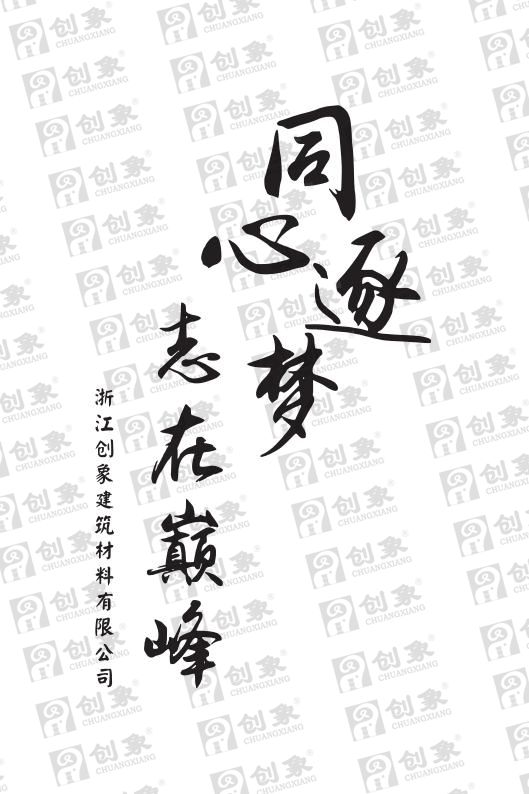 同心逐梦
志在巅峰
浙江创象建筑材料有限公司
创象®
CHUANGXIANG